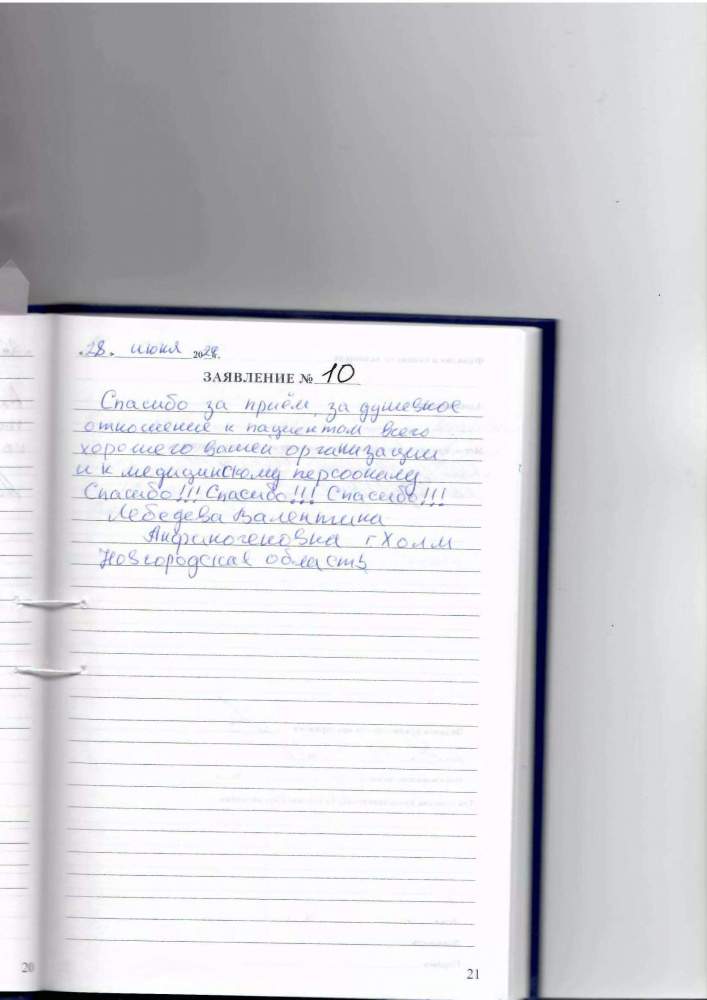 «28» июня 2028г.
ЗАЯВЛЕНИЕ № 10
Спасибо за приём, за душевное
отношение к пациентом всего
хорошего вашей организации
и к медицинскому персооналу
Спасибо!!! Спасибо!!! Спасибо!!!
Лебедева Валентина
Андриногеновна г Холм
Новгородская область
20
21